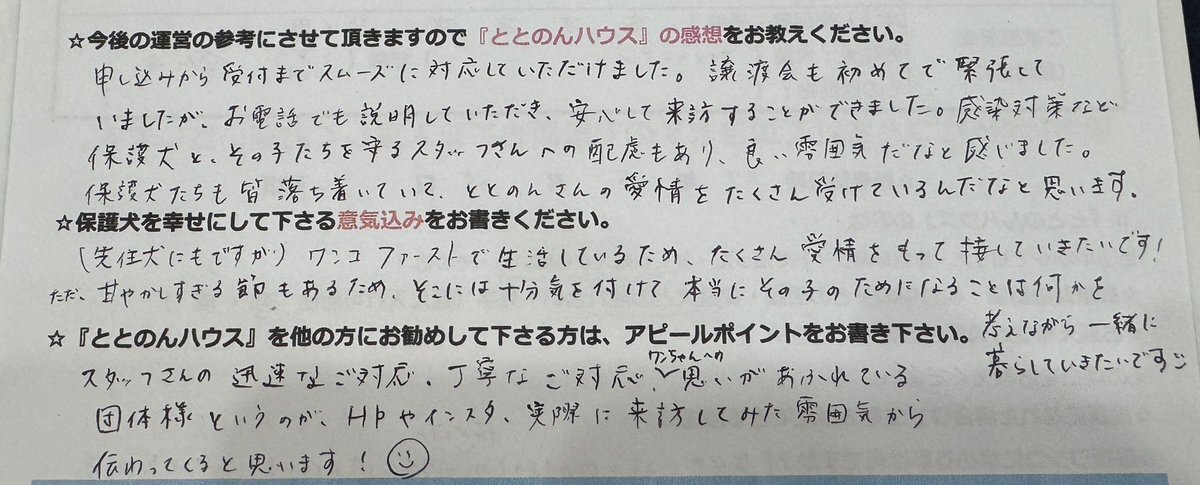 ☆今後の運営の参考にさせて頂きますので『ととのんハウス』の感想をお教えください。
申し込みから受付までスムーズに対応していただけました。譲渡会も初めてで緊張して
いましたが、お電話でも説明していただき、安心して来訪することができました。感染対策など
保護犬と、その子たちを守るスタッフさんへの配慮もあり、良い雰囲気だなと感じました。
保護犬たちも皆落ち着いていて、ととのんさんの愛情をたくさん受けているんだなと思います。
☆保護犬を幸せにして下さる意気込みをお書きください。
(先住犬にもですが)ワンコファーストで生活しているため、たくさん愛情をもって接していきたいです!
ただ、甘やかしすぎる節もあるため、そこには十分気を付けて本当にその子のためになることは何かを
考えながら一緒に
暮らしていきたいです
☆『ととのんハウス』を他の方にお勧めして下さる方は、アピールポイントをお書き下さい。
スタッフさんの迅速なご対応、丁寧なご対応、ワンちゃんへの思いがあふれている
団体様というのが、HPやインスタ、実際に来訪してみた雰囲気から
伝わってくると思います!